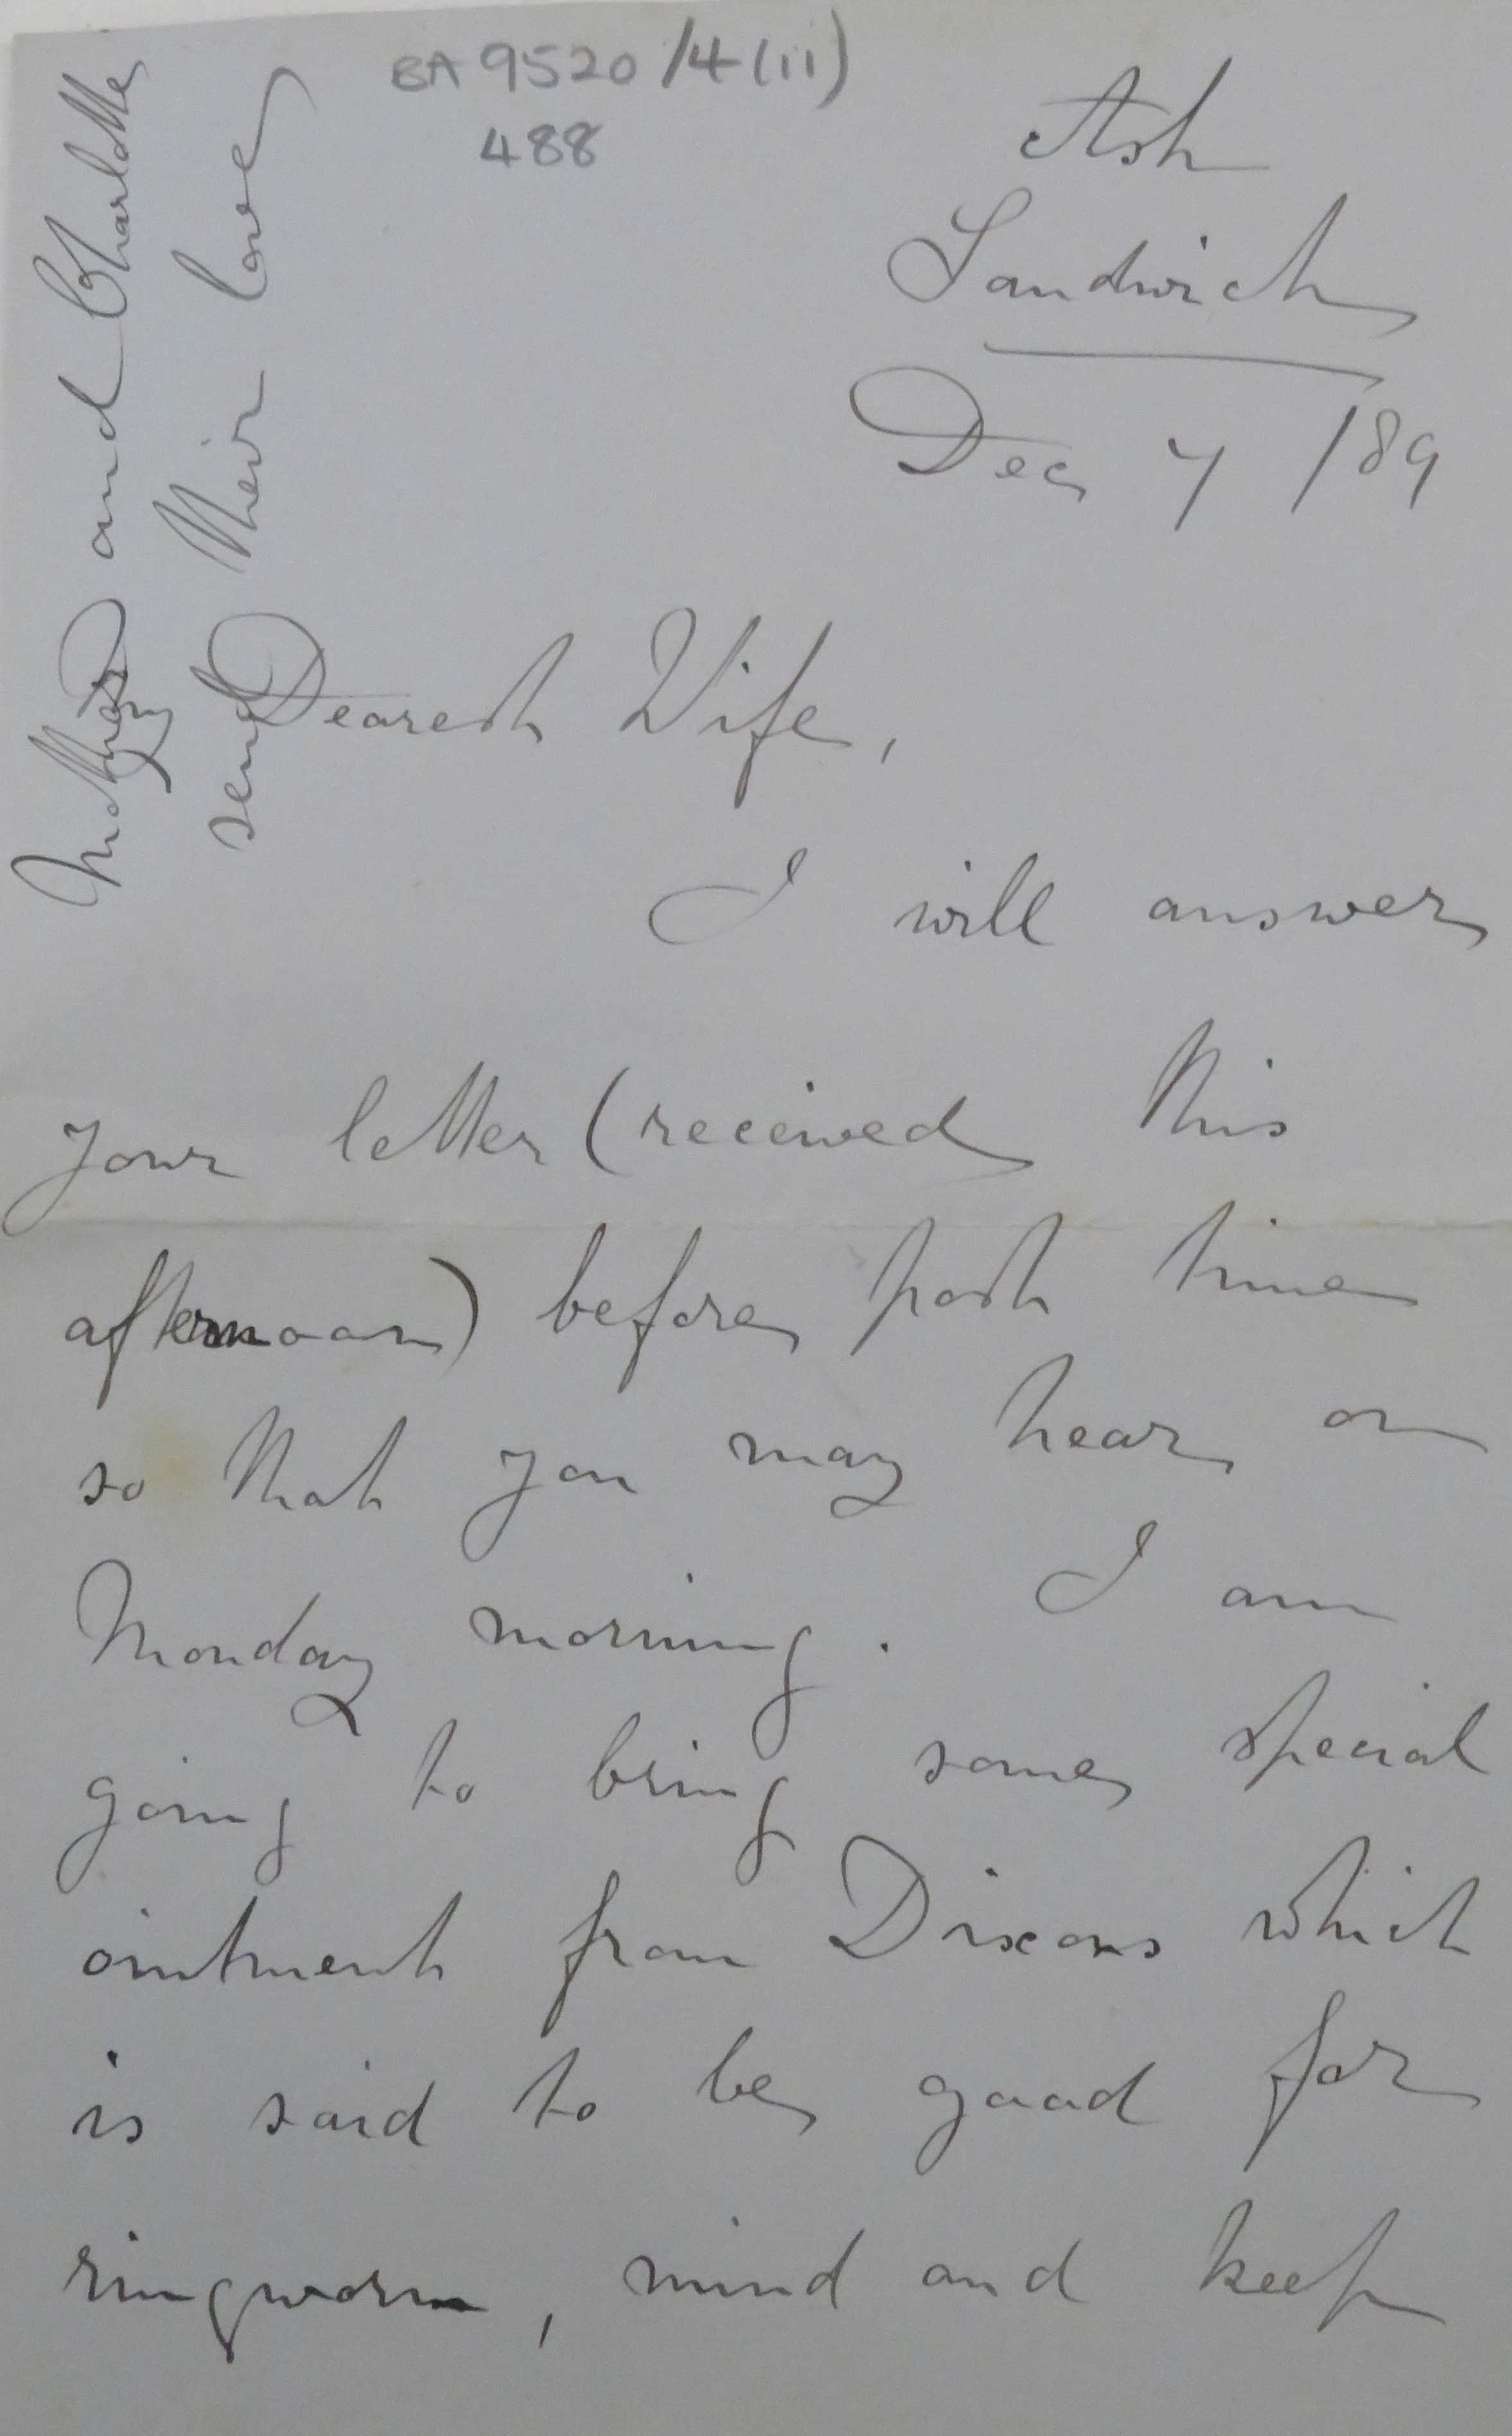 BA 9520/4(ii)
488
Ash
Sandwich
Dec 7 /89
Dearest Wife,
I will answer
your letter (received this
afternoon) before post time
so that you may hear on
Monday morning. I am
going to bring some special
ointment from Dixons which
is said to be good for
ringworm, mind and keep
and Charlotte
send their love